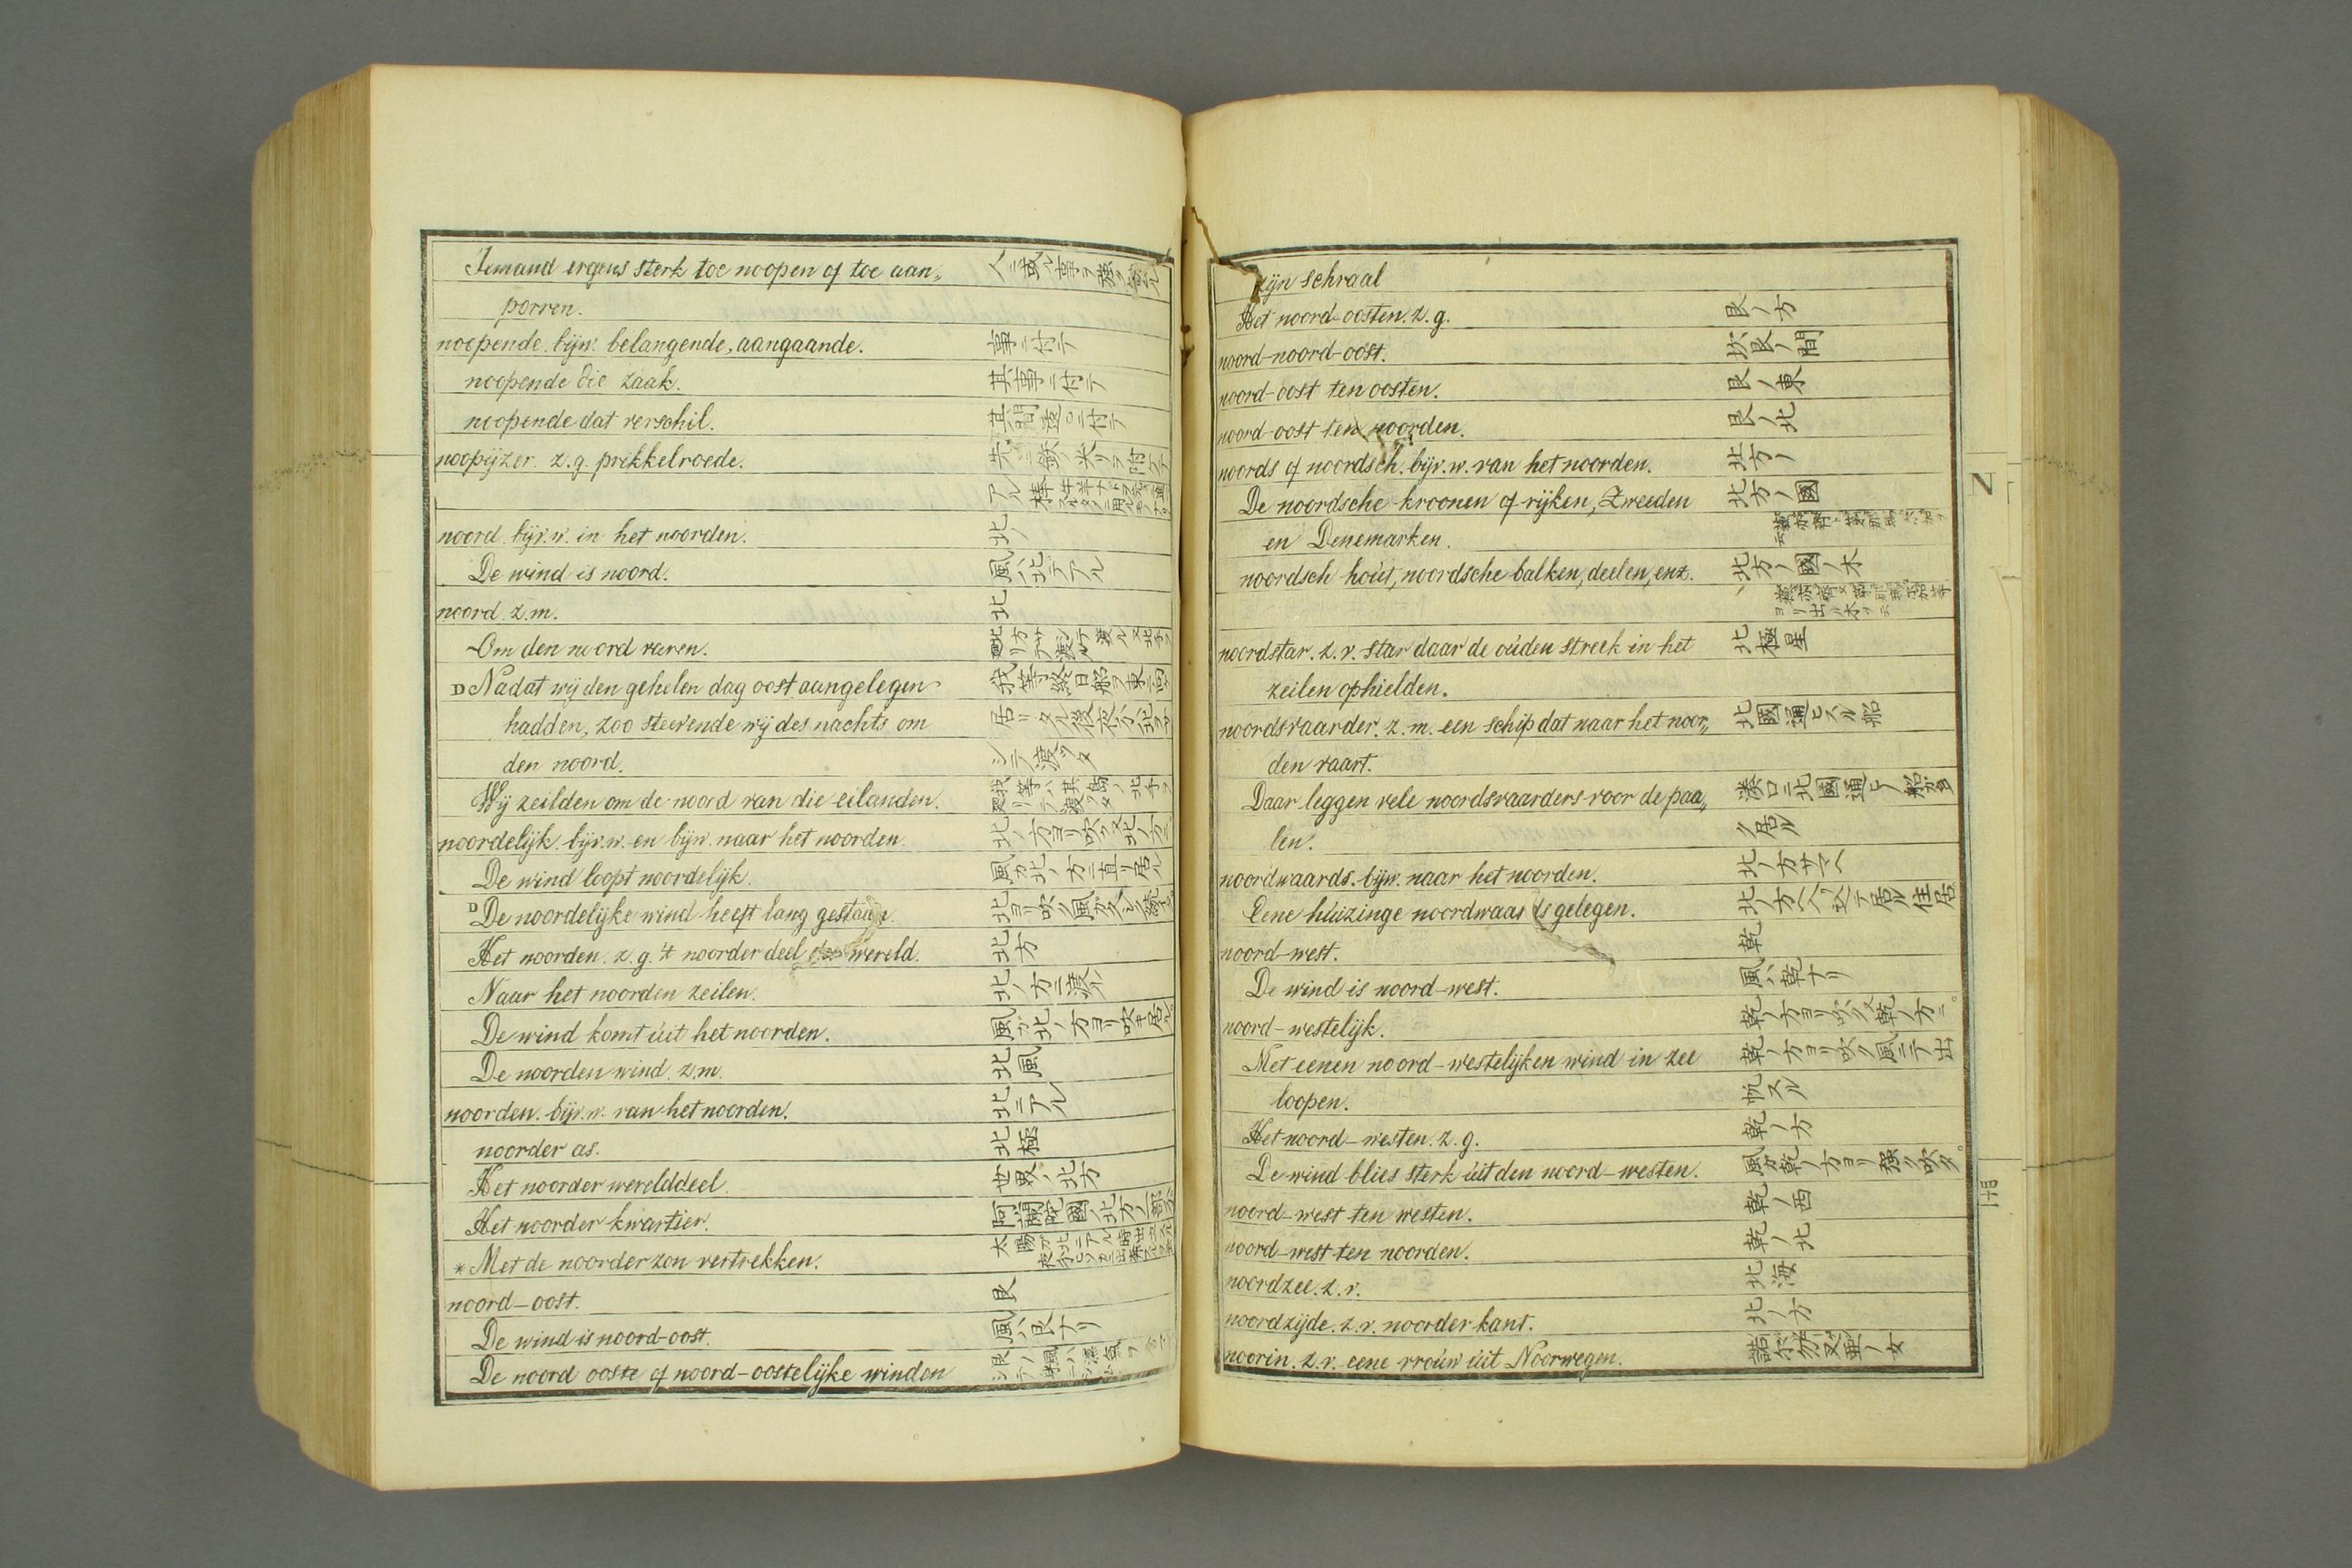 Iemand ergens sterk toe noopen of toe aan„
porren.
noopende. bijw. belangende, aangaande. 事ニ付テ
noopende die zaak. 其事ニ付テ
noopende dat verschil. 其間違ニ付テ
noopijzer. z.g. prikkelroede.
noord. bijv.w. in het noorden. 北ノ
De wind is noord. 風ハ北デアル
noord. z.m. 北
Om den noord varen.
D Nadat wij den gehelen dag oost aangelegen
hadden, zoo steevende wij des nachts om
den noord. シテ渡ツタ
Wij zeilden om de noord van die eilanden.
noordelijk. bijv.w. en bijw. naar het noorden.
De wind loopt noordelijk. 風ガ北ノ方ニ直リ居ル
D De noordelijke wind heeft lang gestaan.
Het noorden. z.g. 't noorder deel der wereld. 北方
Naar het noorden zeilen. 北ノ方ニ渡ル
De wind komt uit het noorden. 風ガ北ノ方ヨリ吹キ居ル
De noorden wind. z.m. 北風
noorden. bijv.w. van het noorden. 北ニアル
noorder as. 北極
Het noorder werelddeel. 世界ノ北方
Het noorder kwartier. 阿蘭陀國ノ北方ノ一部分
* Met de noorder zon vertrekken. 太陽
noord-oost. 艮
De wind is noord-oost. 風ハ艮ナリ
De noord ooste of noord-oostelijke winden
zijn schraal
Het noord-oosten. z.g. 艮ノ方
noord-noord-oost. 坎艮ノ間
noord-oost ten oosten. 艮ノ東
noord-oost ten noorden. 艮ノ北
noords of noordsch. bijv.w. van het noorden. 北方ノ
De noordsche kroonen of rijken, Zweeden 北方ノ國
en Denemarken.
noordsch hout, noordsche balken, deelen, enz. 北方ノ國ノ木
noordstar. z.v. star daar de ouden streek in het 北極星
zeilen ophielden.
noordsvaarder. z.m. een schip dat naar het noor„ 北國通ヒスル船
den vaart.
Daar leggen vele noordsvaarders voor de paa„ 湊口ニ北國通ヒノ船多
len. ク居ル
noordwaards. bijw. naar het noorden. 北ノ方サマヘ
Eene huizinge noordwaards gelegen.
noord-west. 乾
De wind is noord-west. 風ハ乾ナリ
noord-westelijk. 乾ノ方ヨリ吹ク又乾ノ方ニ
Met eenen noord-westelijken wind in zee 乾ノ方ヨリ吹ク風ニテ出
loopen. 帆スル
Het noord-westen. z.g. 乾ノ方
De wind blies sterk uit den noord-westen. 風ガ乾ノ方ヨリ強ク吹タ
noord-west ten westen. 乾ノ西
noord-west ten noorden. 乾ノ北
noordzee. z.v. 北海
noordzijde. z.v. noorder kant. 北ノ方
noorin. z.v. eene vrouw uit Noorwegen.
N